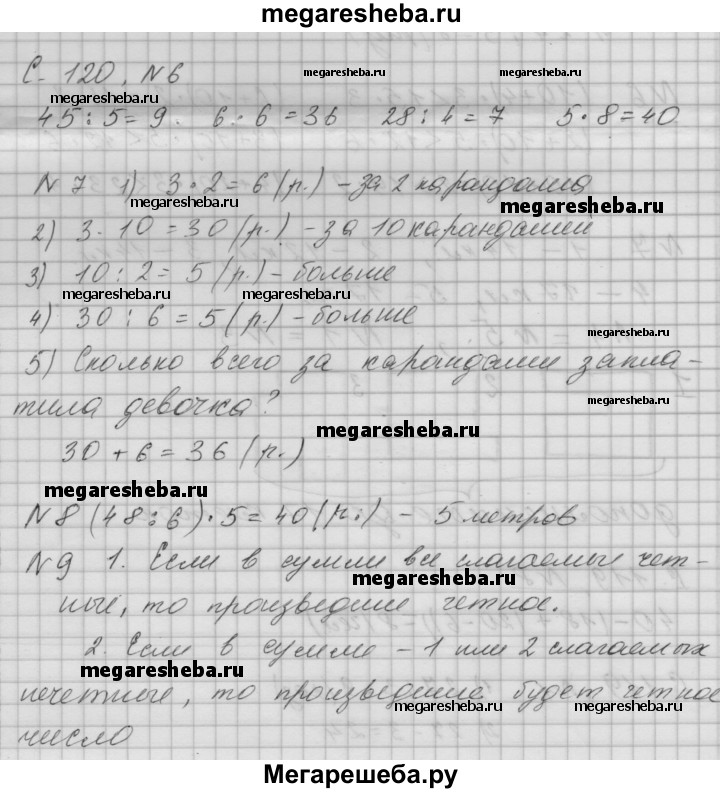 megaresheba.ru
С. 120, N 6
megaresheba.ru megaresheba.ru
megaresheba.ru
45 : 5 = 9. 6 · 6 = 36 28 : 4 = 7 5 · 8 = 40
N 7 1) 3 · 2 = 6 (р.) – за 2 карандаша
megaresheba.ru megaresheba.ru
2) 3 · 10 = 30 (р.) – за 10 карандашей
3) 10 : 2 = 5 (р.) – больше
megaresheba.ru megaresheba.ru
4) 30 : 6 = 5 (р.) – больше
megaresheba.ru
5) Сколько всего за карандаши запла-
тила девочка?
megaresheba.ru
megaresheba.ru
30 + 6 = 36 (р.)
megaresheba.ru
N 8 (48 : 6) · 5 = 40 (р.) – 5 метров
N 9 1. Если в сумме все слагаемые чет-
megaresheba.ru
ные, то произведение четное.
2. Если в сумме – 1 или 2 слагаемых
megaresheba.ru
нечетные, то произведение будет четное
megaresheba.ru megaresheba.ru
число
Мегарешеба.ру